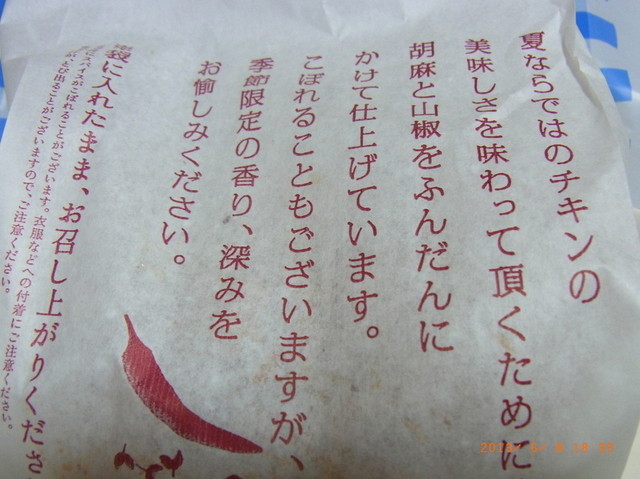 夏ならではのチキンの
美味しさを味わって頂くために
胡麻と山椒をふんだんに
かけて仕上げています。
こぼれることもございますが、
季節限定の香り、深みを
お愉しみください。
袋に入れたまま、お召し上がりくださ
にスパイスがこぼれることがございます。衣服などへの付着にご注意ください。
とび出ることがございますので、ご注意ください。